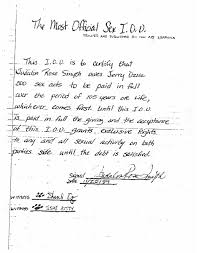 The Most Official Sex I.O.U.
This I.O.U. is to certify that
Rose Smyth owes Jerry
500 sex acts to be paid in full
over the period of 105 years or life,
whichever comes first. Until this I.O.U
is paid in full the giving and the acceptance
of this I.O.U. grants exclusive rights
to any and all sexual activity on both
parties side until the debt is satisfied.
Signed
Dated
witness
witness